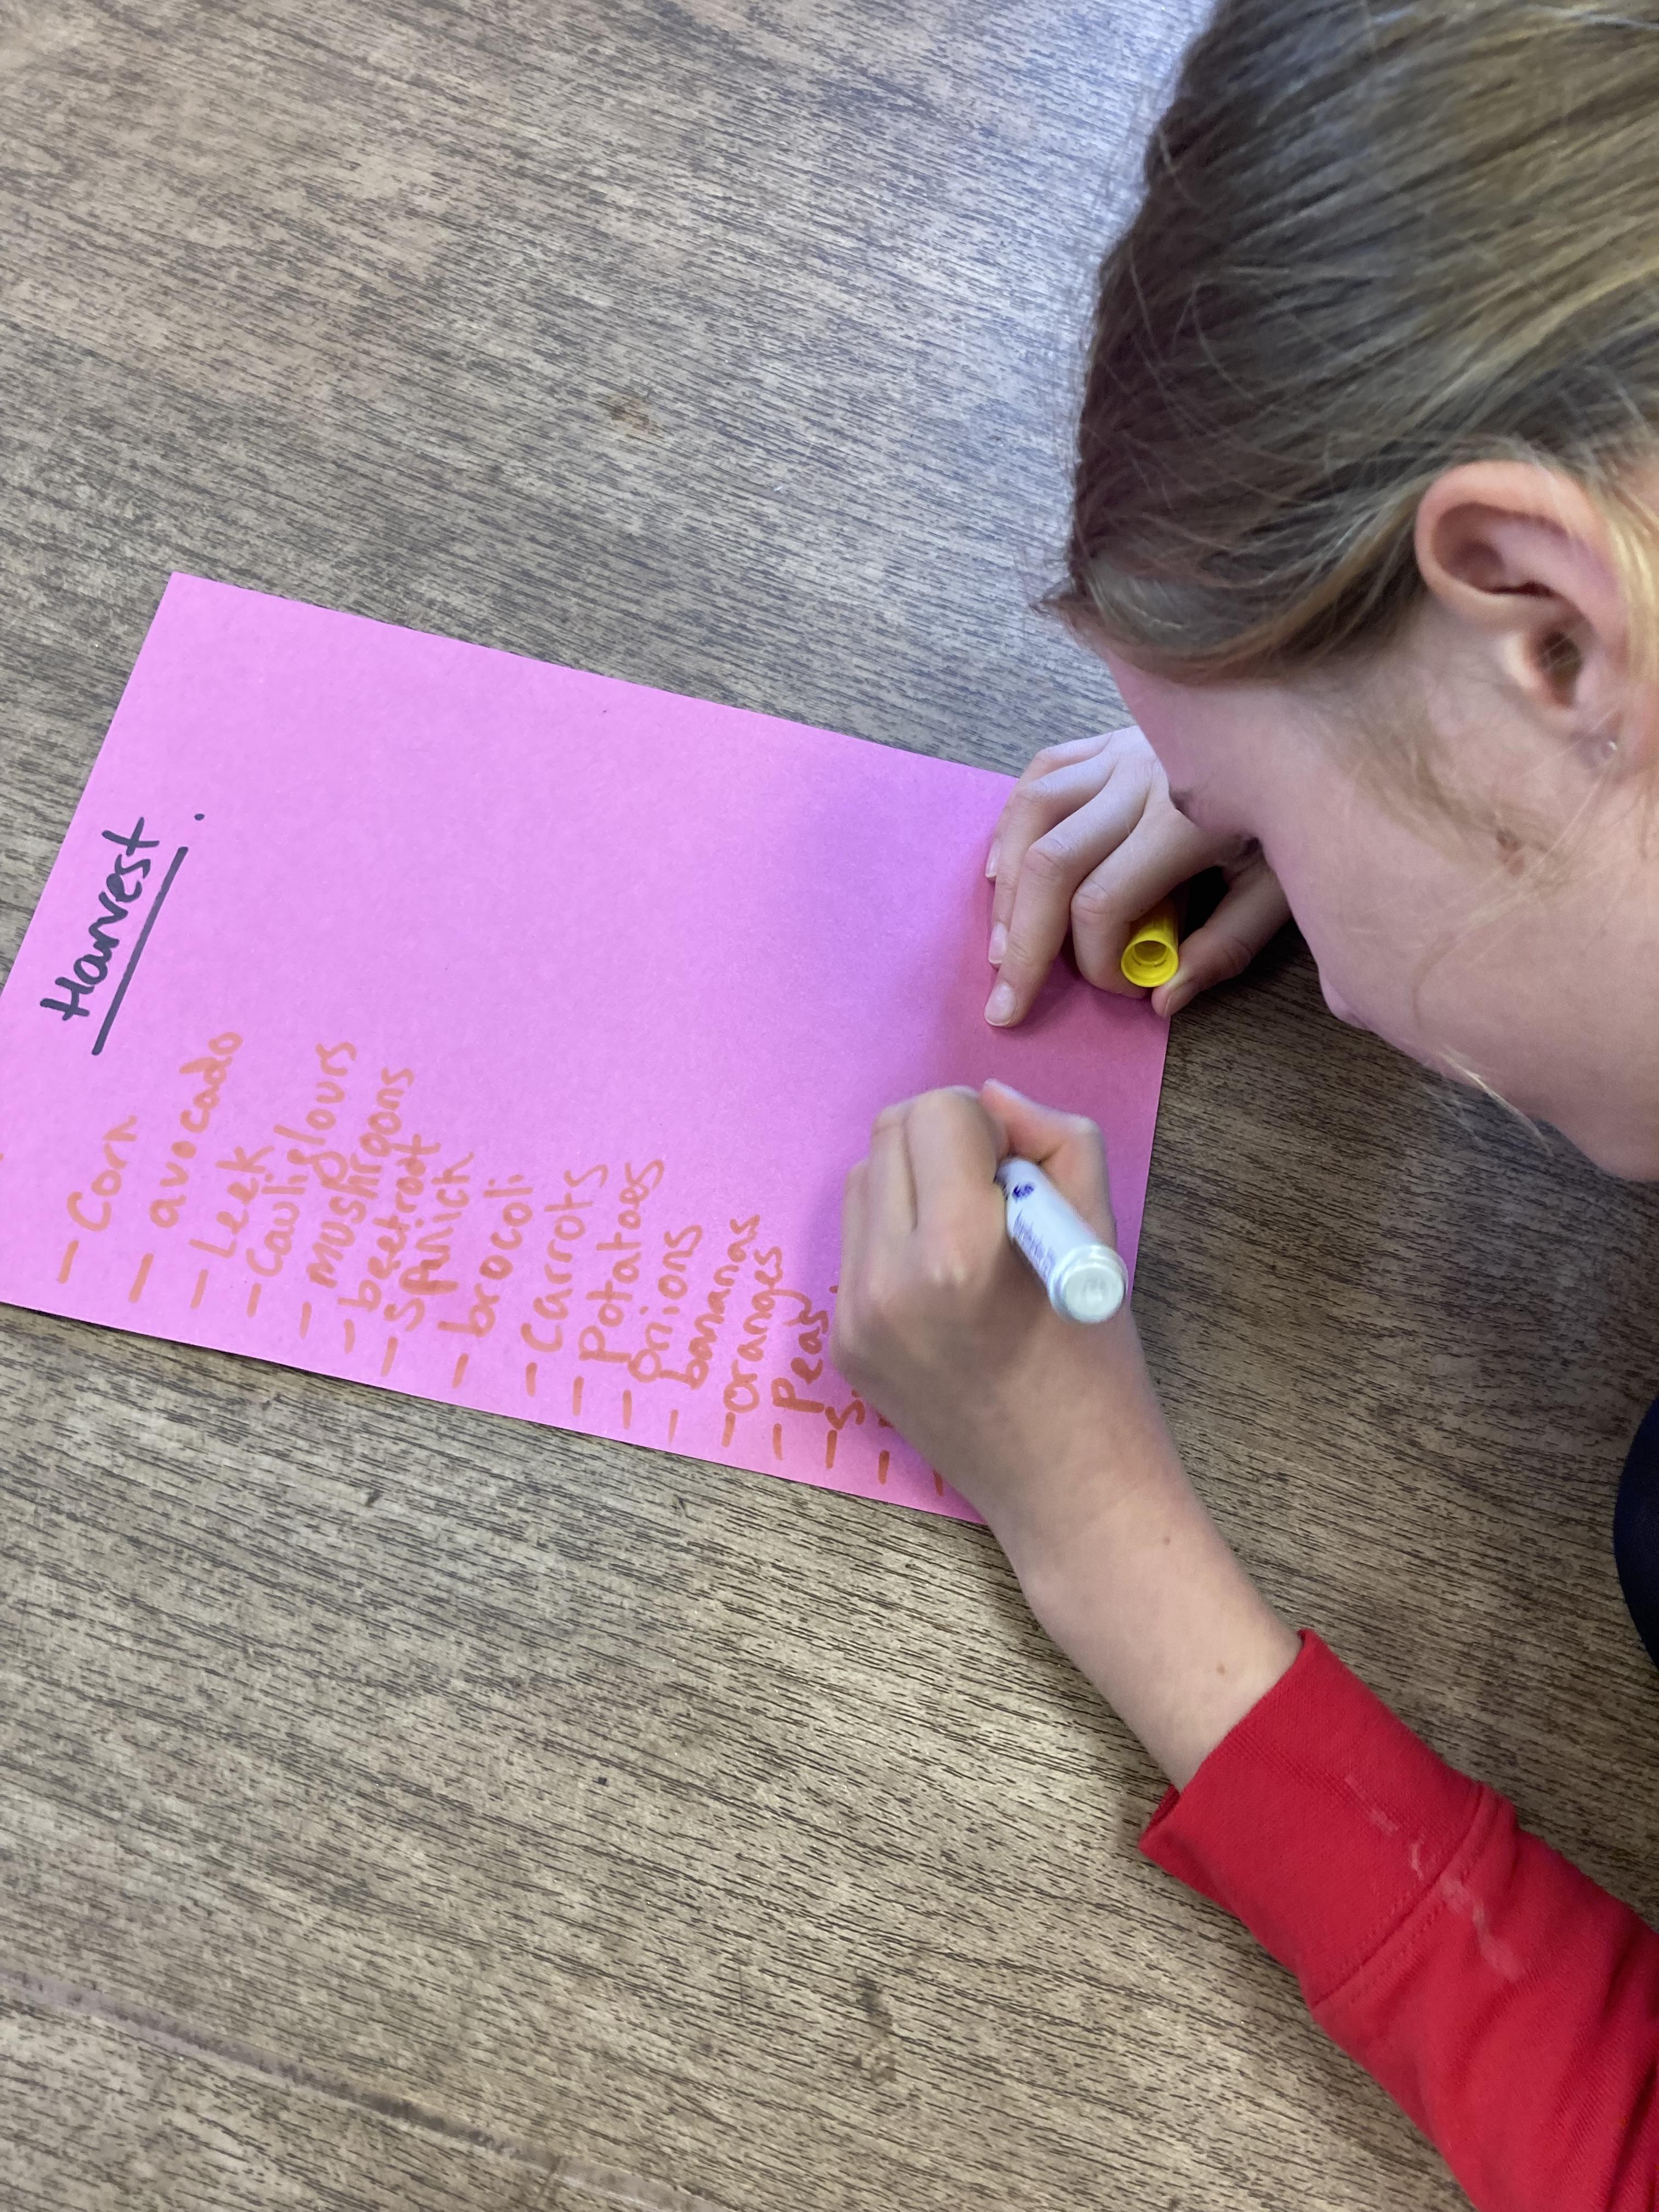 Harvest.
- Corn
- avocado
- Leek
- Cauliflours
- mushroons
- beetroot
- spinich
- brocoli
- Carrots
- Potatoes
- onions
- bananas
- oranges
- Peas